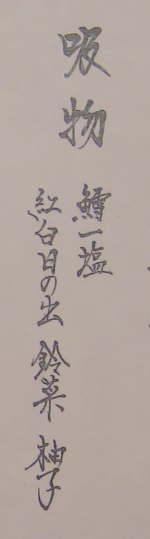 吸物
鱈一塩
紅白日の出 鈴菜 柚子